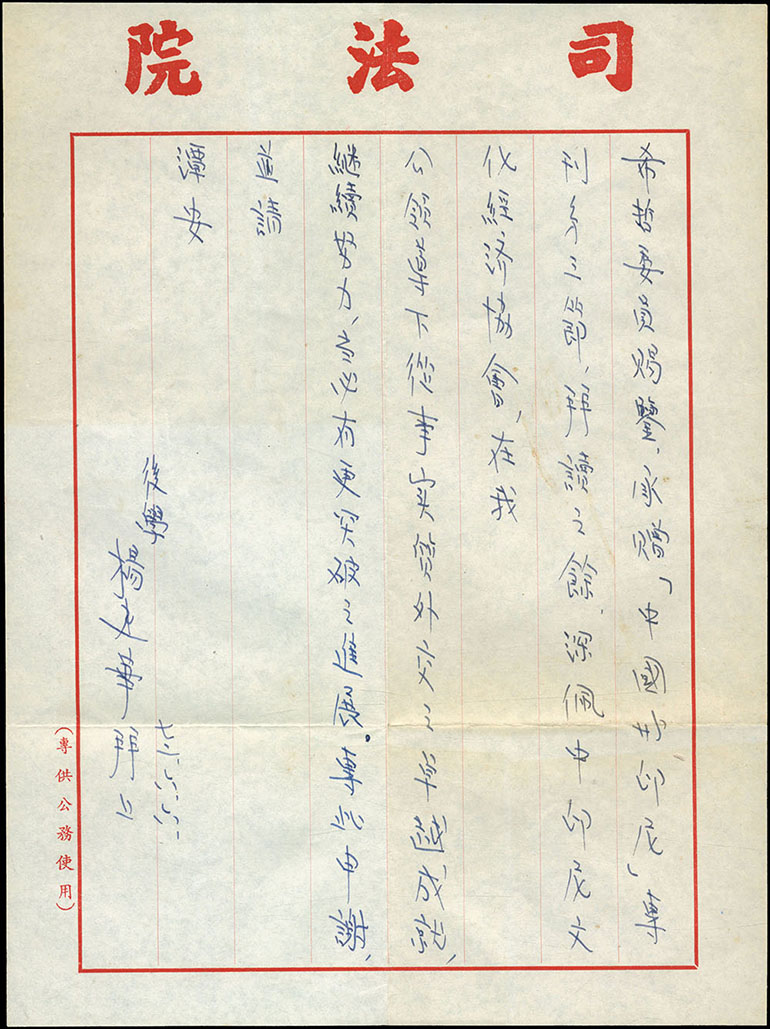 司法院
希哲委員賜鑒、承贈「中國與印尼」專
刊第三節、拜讀之餘、深佩中印尼文
化經濟協會、在我
公領導下從事實質外交之卓越成就、
繼續努力、當必有更突破之進展。專此申謝、
並請
潭安
後學 楊 拜上
七六、六、
（專供公務使用）